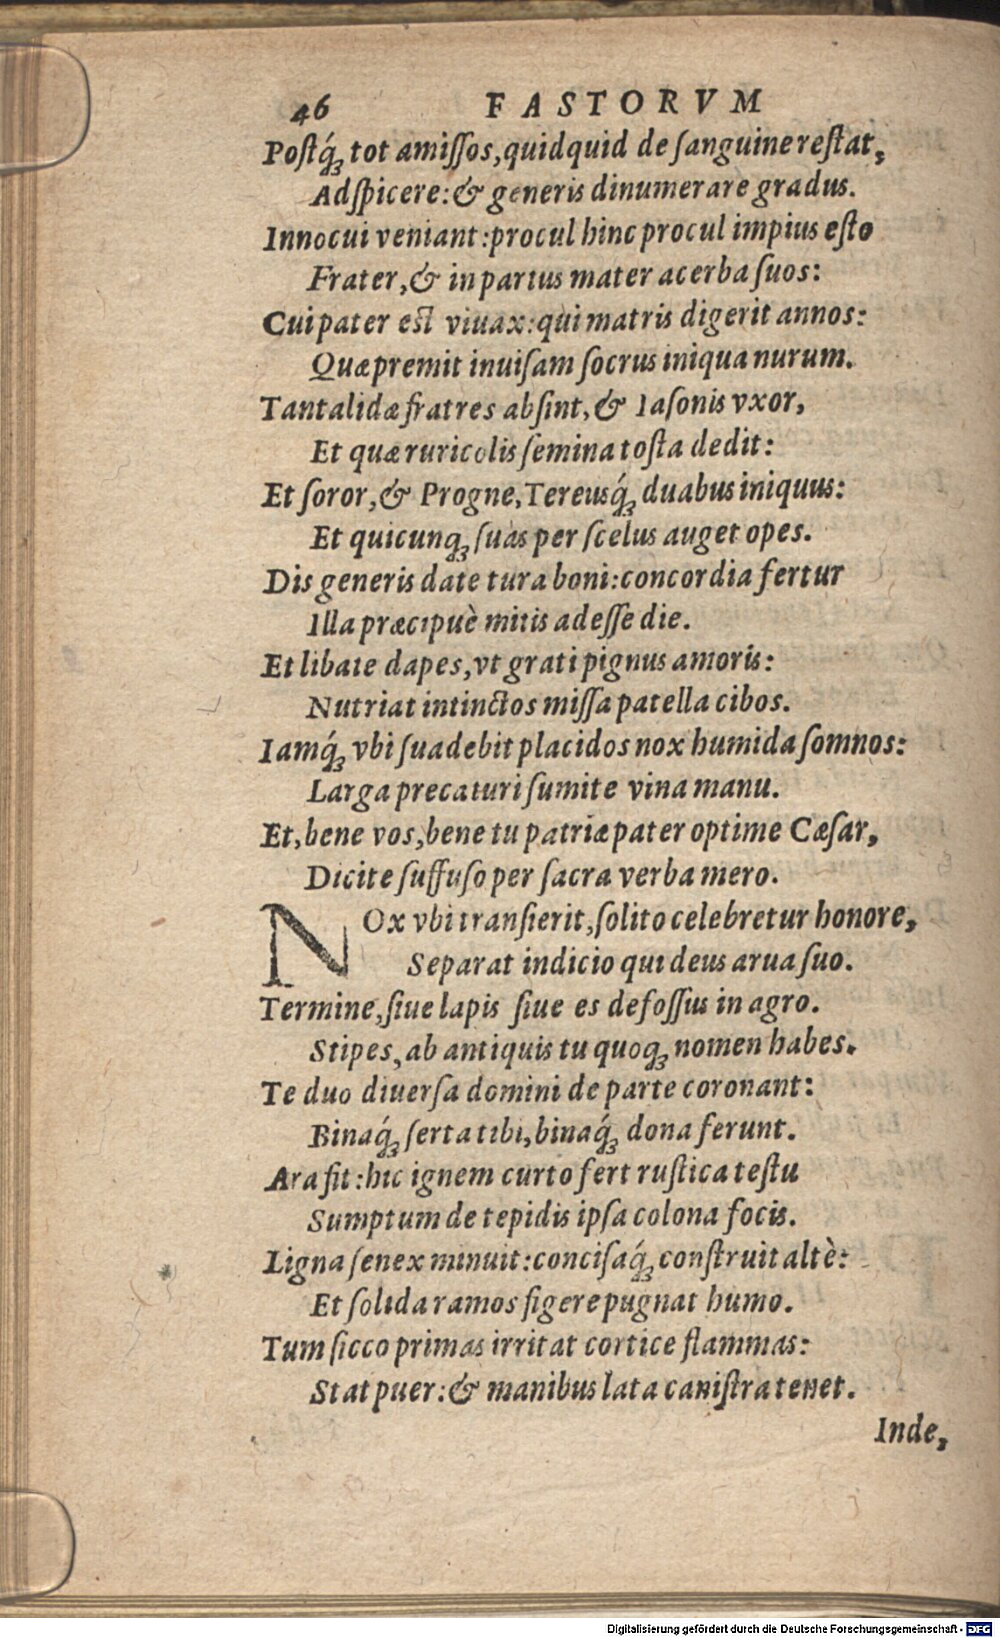 46 FASTORVM
Poſtq́ꝫ tot amiſſos, quidquid de ſanguine reſtat,
Adſpicere: & generis dinumerare gradus.
Innocui veniant: procul hinc procul impius eſto
Frater, & in partus mater acerba ſuos:
Cui pater eſt viuax: qui matris digerit annos:
Quæ premit inuiſam ſocrus iniqua nurum.
Tantalidæ fratres abſint, & Iaſonis vxor,
Et quæ ruricolis ſemina toſta dedit:
Et ſoror, & Progne, Tereusq́ꝫ duabus iniquus:
Et quicunqꝫ ſuas per ſcelus auget opes.
Dis generis date tura boni: concordia fertur
Illa præcipuè mitis adeſſe die.
Et libate dapes, vt grati pignus amoris:
Nutriat intinctos miſſa patella cibos.
Iamq́ꝫ vbi ſuadebit placidos nox humida ſomnos:
Larga precaturi ſumite vina manu.
Et, bene vos, bene tu patriæ pater optime Cæſar,
Dicite ſuffuſo per ſacra verba mero.
NOx vbi tranſierit, ſolito celebretur honore,
Separat indicio qui deus arua ſuo.
Termine, ſiue lapis ſiue es defoſſus in agro.
Stipes, ab antiquis tu quoqꝫ nomen habes.
Te duo diuerſa domini de parte coronant:
Binaq́ꝫ ſerta tibi, binaq́ꝫ dona ferunt.
Ara fit: hic ignem curto fert ruſtica teſtu
Sumptum de tepidis ipſa colona focis.
Ligna ſenex minuit: conciſaq́ꝫ conſtruit altè:
Et ſolida ramos figere pugnat humo.
Tum ſicco primas irritat cortice flammas:
Stat puer: & manibus lata caniſtra tenet.
Inde,
Digitalisierung gefördert durch die Deutsche Forschungsgemeinschaft - DFG